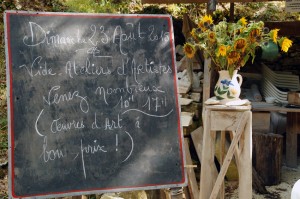 Dimanche 23 Août
Vide Ateliers d'Artistes
Venez nombreux
10H 17H
(Œuvres d'Art à
bon prix !)